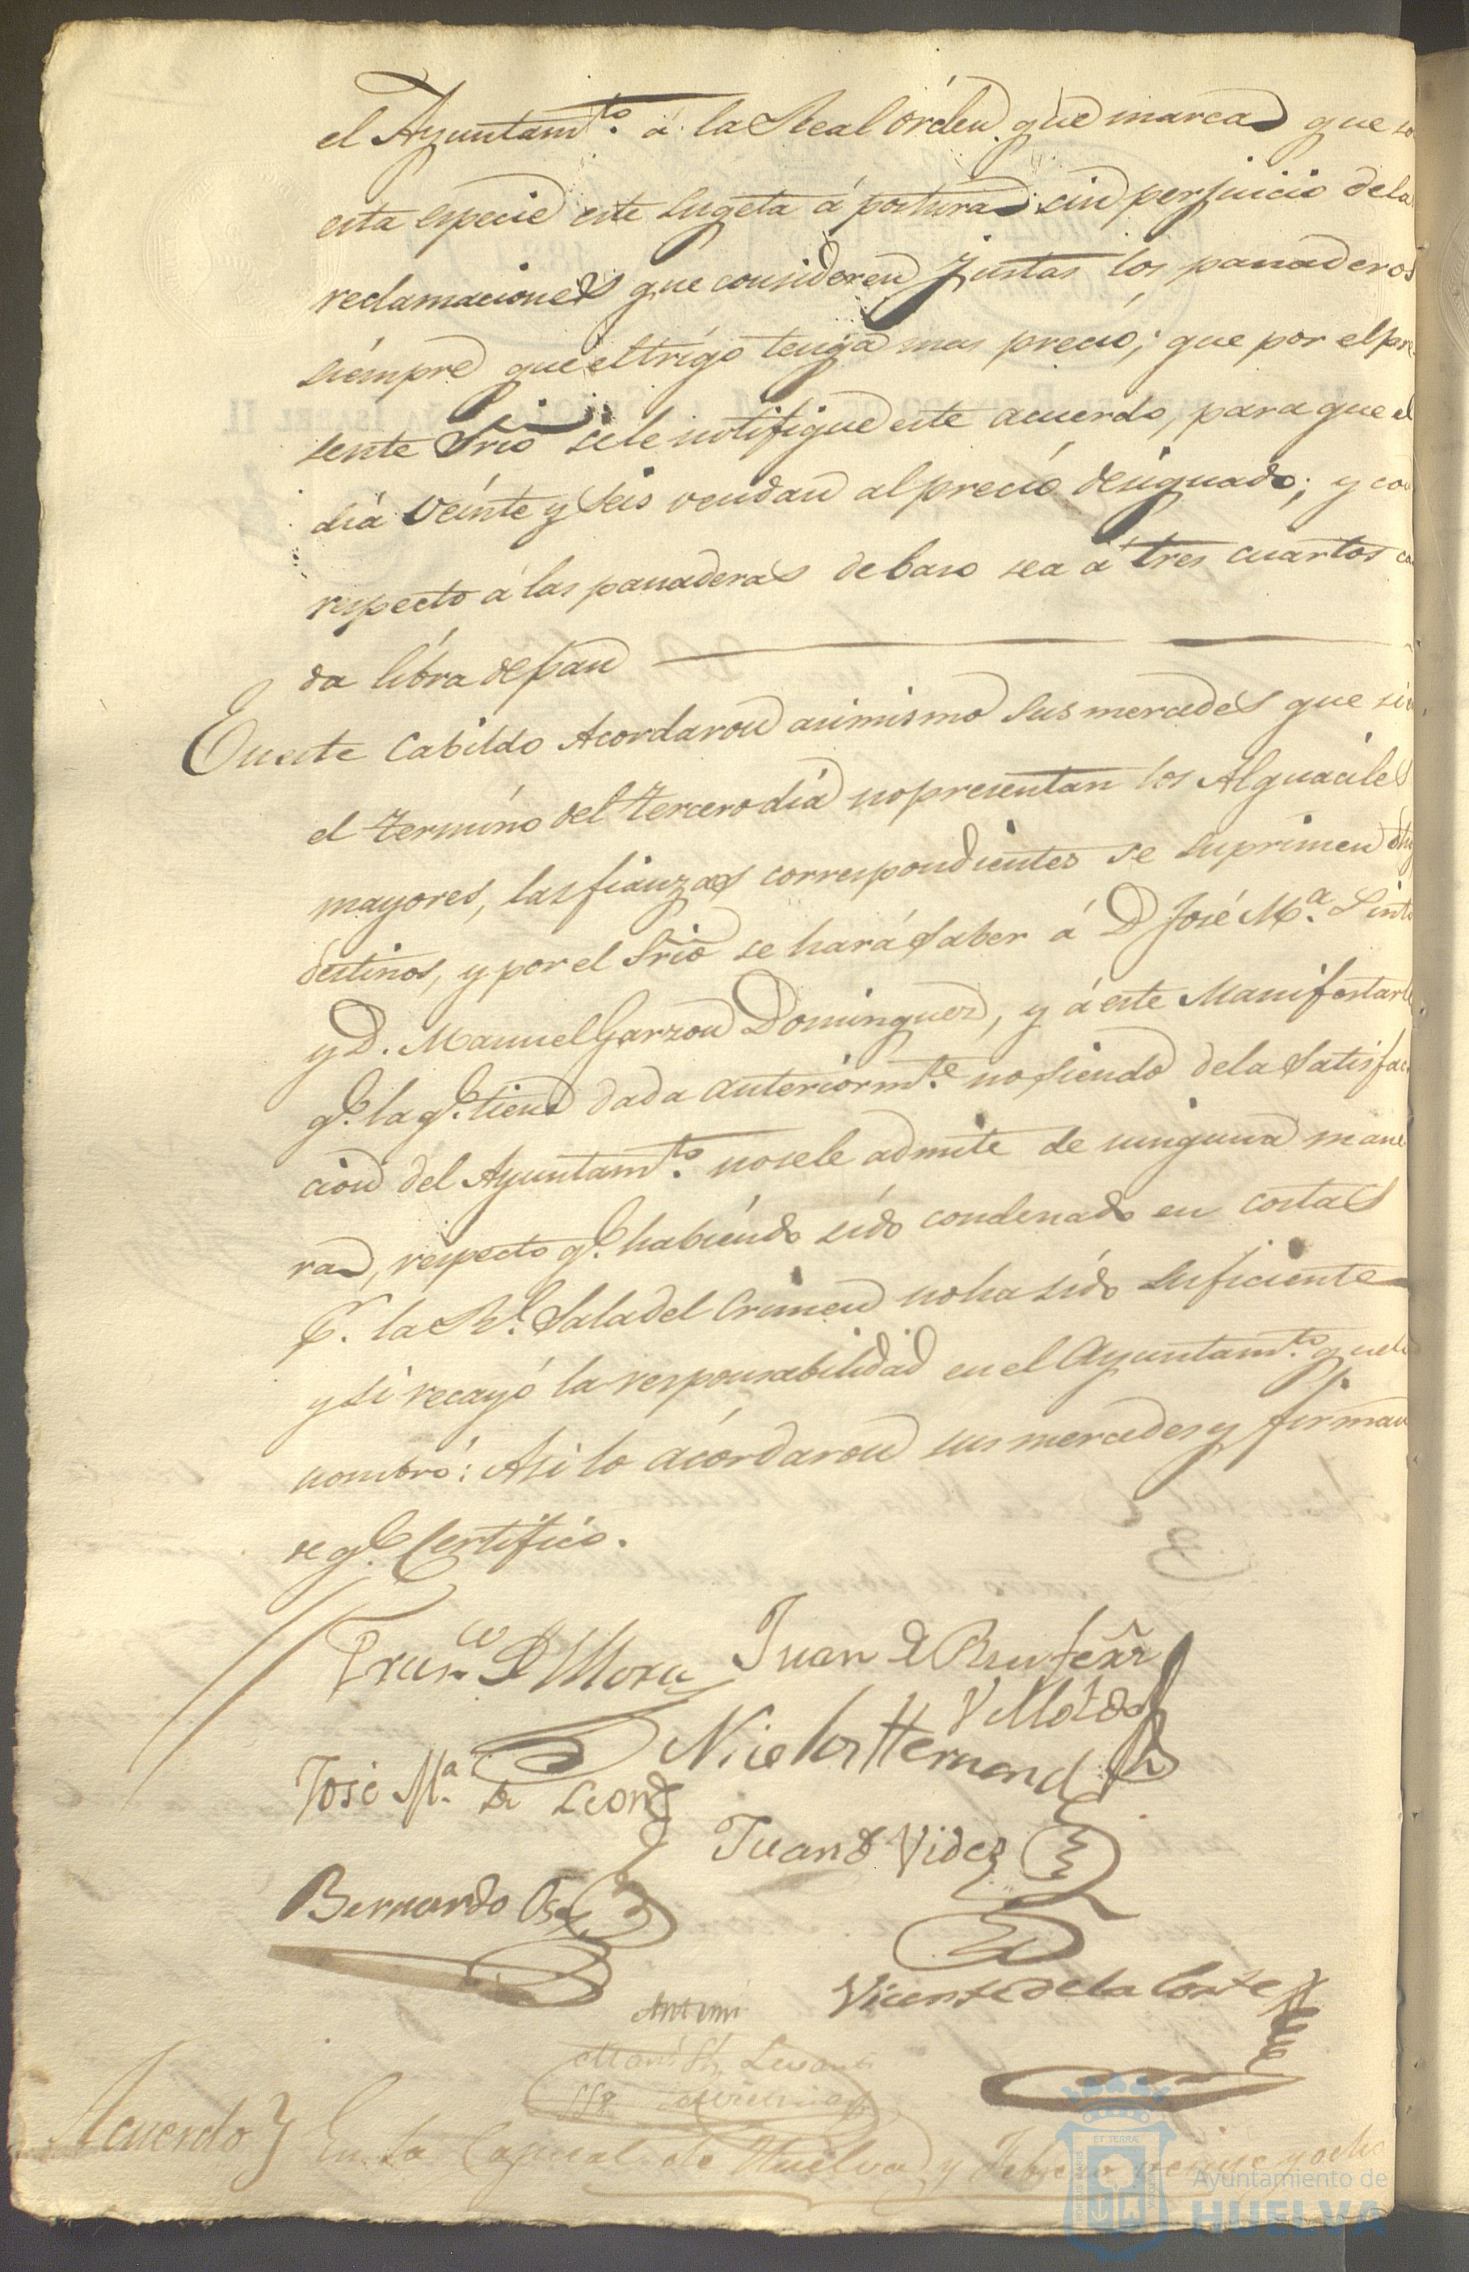 el Ayuntam.to á la Real órden que marca que so
esta especie este sugeta á postura sin perjuicio de la
reclamaciones que consideren Justas los panaderos
siempre que el trígo tenga mas precio; que por el pre-
sente Srio se le notifique este acuerdo, para que el
dia veinte y seis vendan al precio designado; y con
respecto á las panaderas de baso sea á tres cuartos ca
da líbra de pan
En este Cabildo Acordaron asimismo sus mercedes que si en
el término del tercero dia no presentan los Alguaciles
mayores, las fianzas correspondientes se suprimen dhos
destinos, y por el Srio se hará saber á D José M.a Pinto
y D. Manuel Garzon Dominguez, y á este Manifestarle
q.e la q.e tiene dada anteriorm.te no siendo de la satisfac
cion del Ayuntam.to no se le admite de ninguna mane
ra, respecto q.e habiéndo sido condenado en costas
p.r la R.l Sala del Crimen no ha sido suficiente
y si recayó la responsabilidad en el Ayuntam.to que lo
nombró: Asi lo acórdaron sus mercedes y firman
de q.e Certifico.
Fran.co de Mora Juan de
José M.a de Leon Nicolas Hernand
Juan de Vides
Bernardo
Vicente de la Corte
Antemi
Acuerdo En la Capital de Huelva y Febrero veinte y ocho
ET TERRAE
Ayuntamiento de
HUELVA